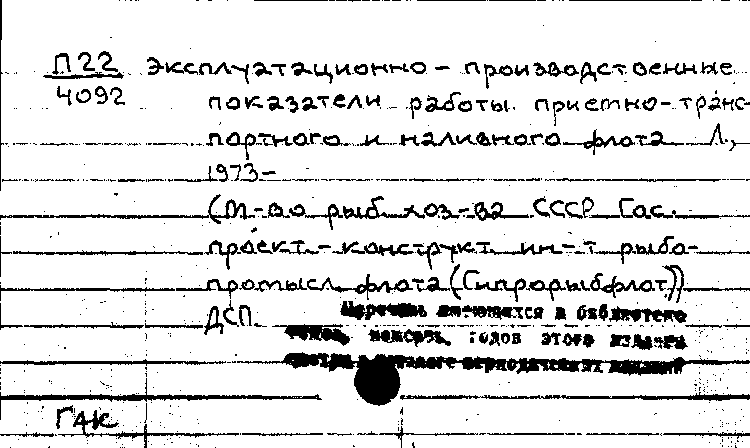 П22 Эксплуатационно-производственные
4092 показатели работы приемно-транс-
портного и наливного флота Л.,
1973-
(М-во рыб. хоз-ва СССР Гос.
проект.-конструкт. ин-т рыбо-
промысл. флота (Гипрорыбфлот))
ДСП. Перечень имеющихся в библиотеке
томов, номеров, годов этого издания
смотри в каталоге периодических изданий
ГАК